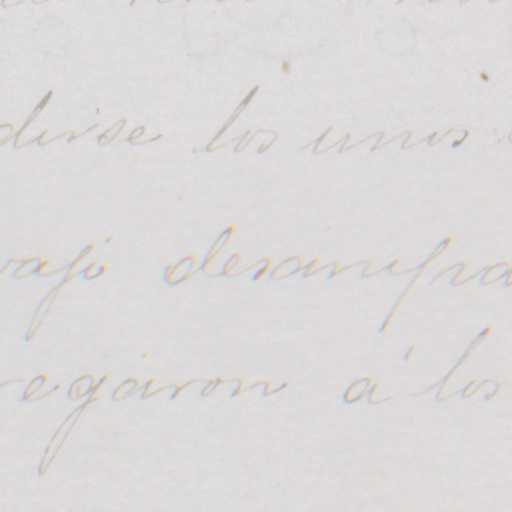 dirse los unos
vajo desampa
egaron á los